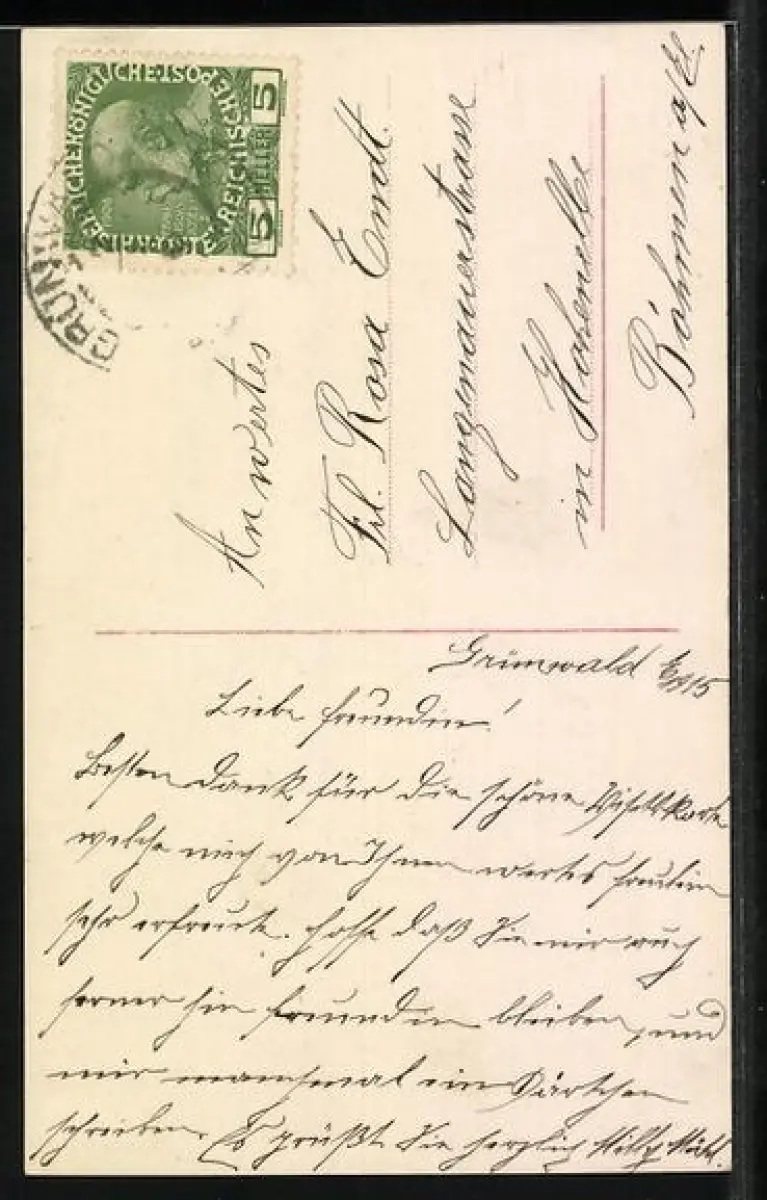 KAISERLICHE KÖNIGLICHE ÖSTERREICHISCHE POST
5 HELLER 5
GRÜNW
An wertes
Frl. Rosa Endt.
Langenauerstrasse
in Hohenelbe
Böhmen a/E.
Grünwald 15
Liebe Freundin!
Besten Dank für die schöne Visittkarte
welche mich von Ihnen wertes Freulein
sehr erfreute. Hoffe daß Sie mir auch
ferner hin Freundin bleiben, und
mir manchmal ein Kärtchen
schreiben. Es grüßt Sie herzlich